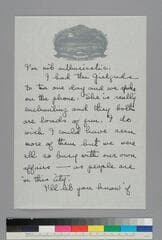 I'm not enthusiastic.
I had the Gielguds
to tea one day and we spoke
on the phone. She is really
enchanting and they both
are loads of fun. I do
wish I could have seen
more of them but we were
all so busy with our own
affairs — as people are
in this city.
I'll let you know if